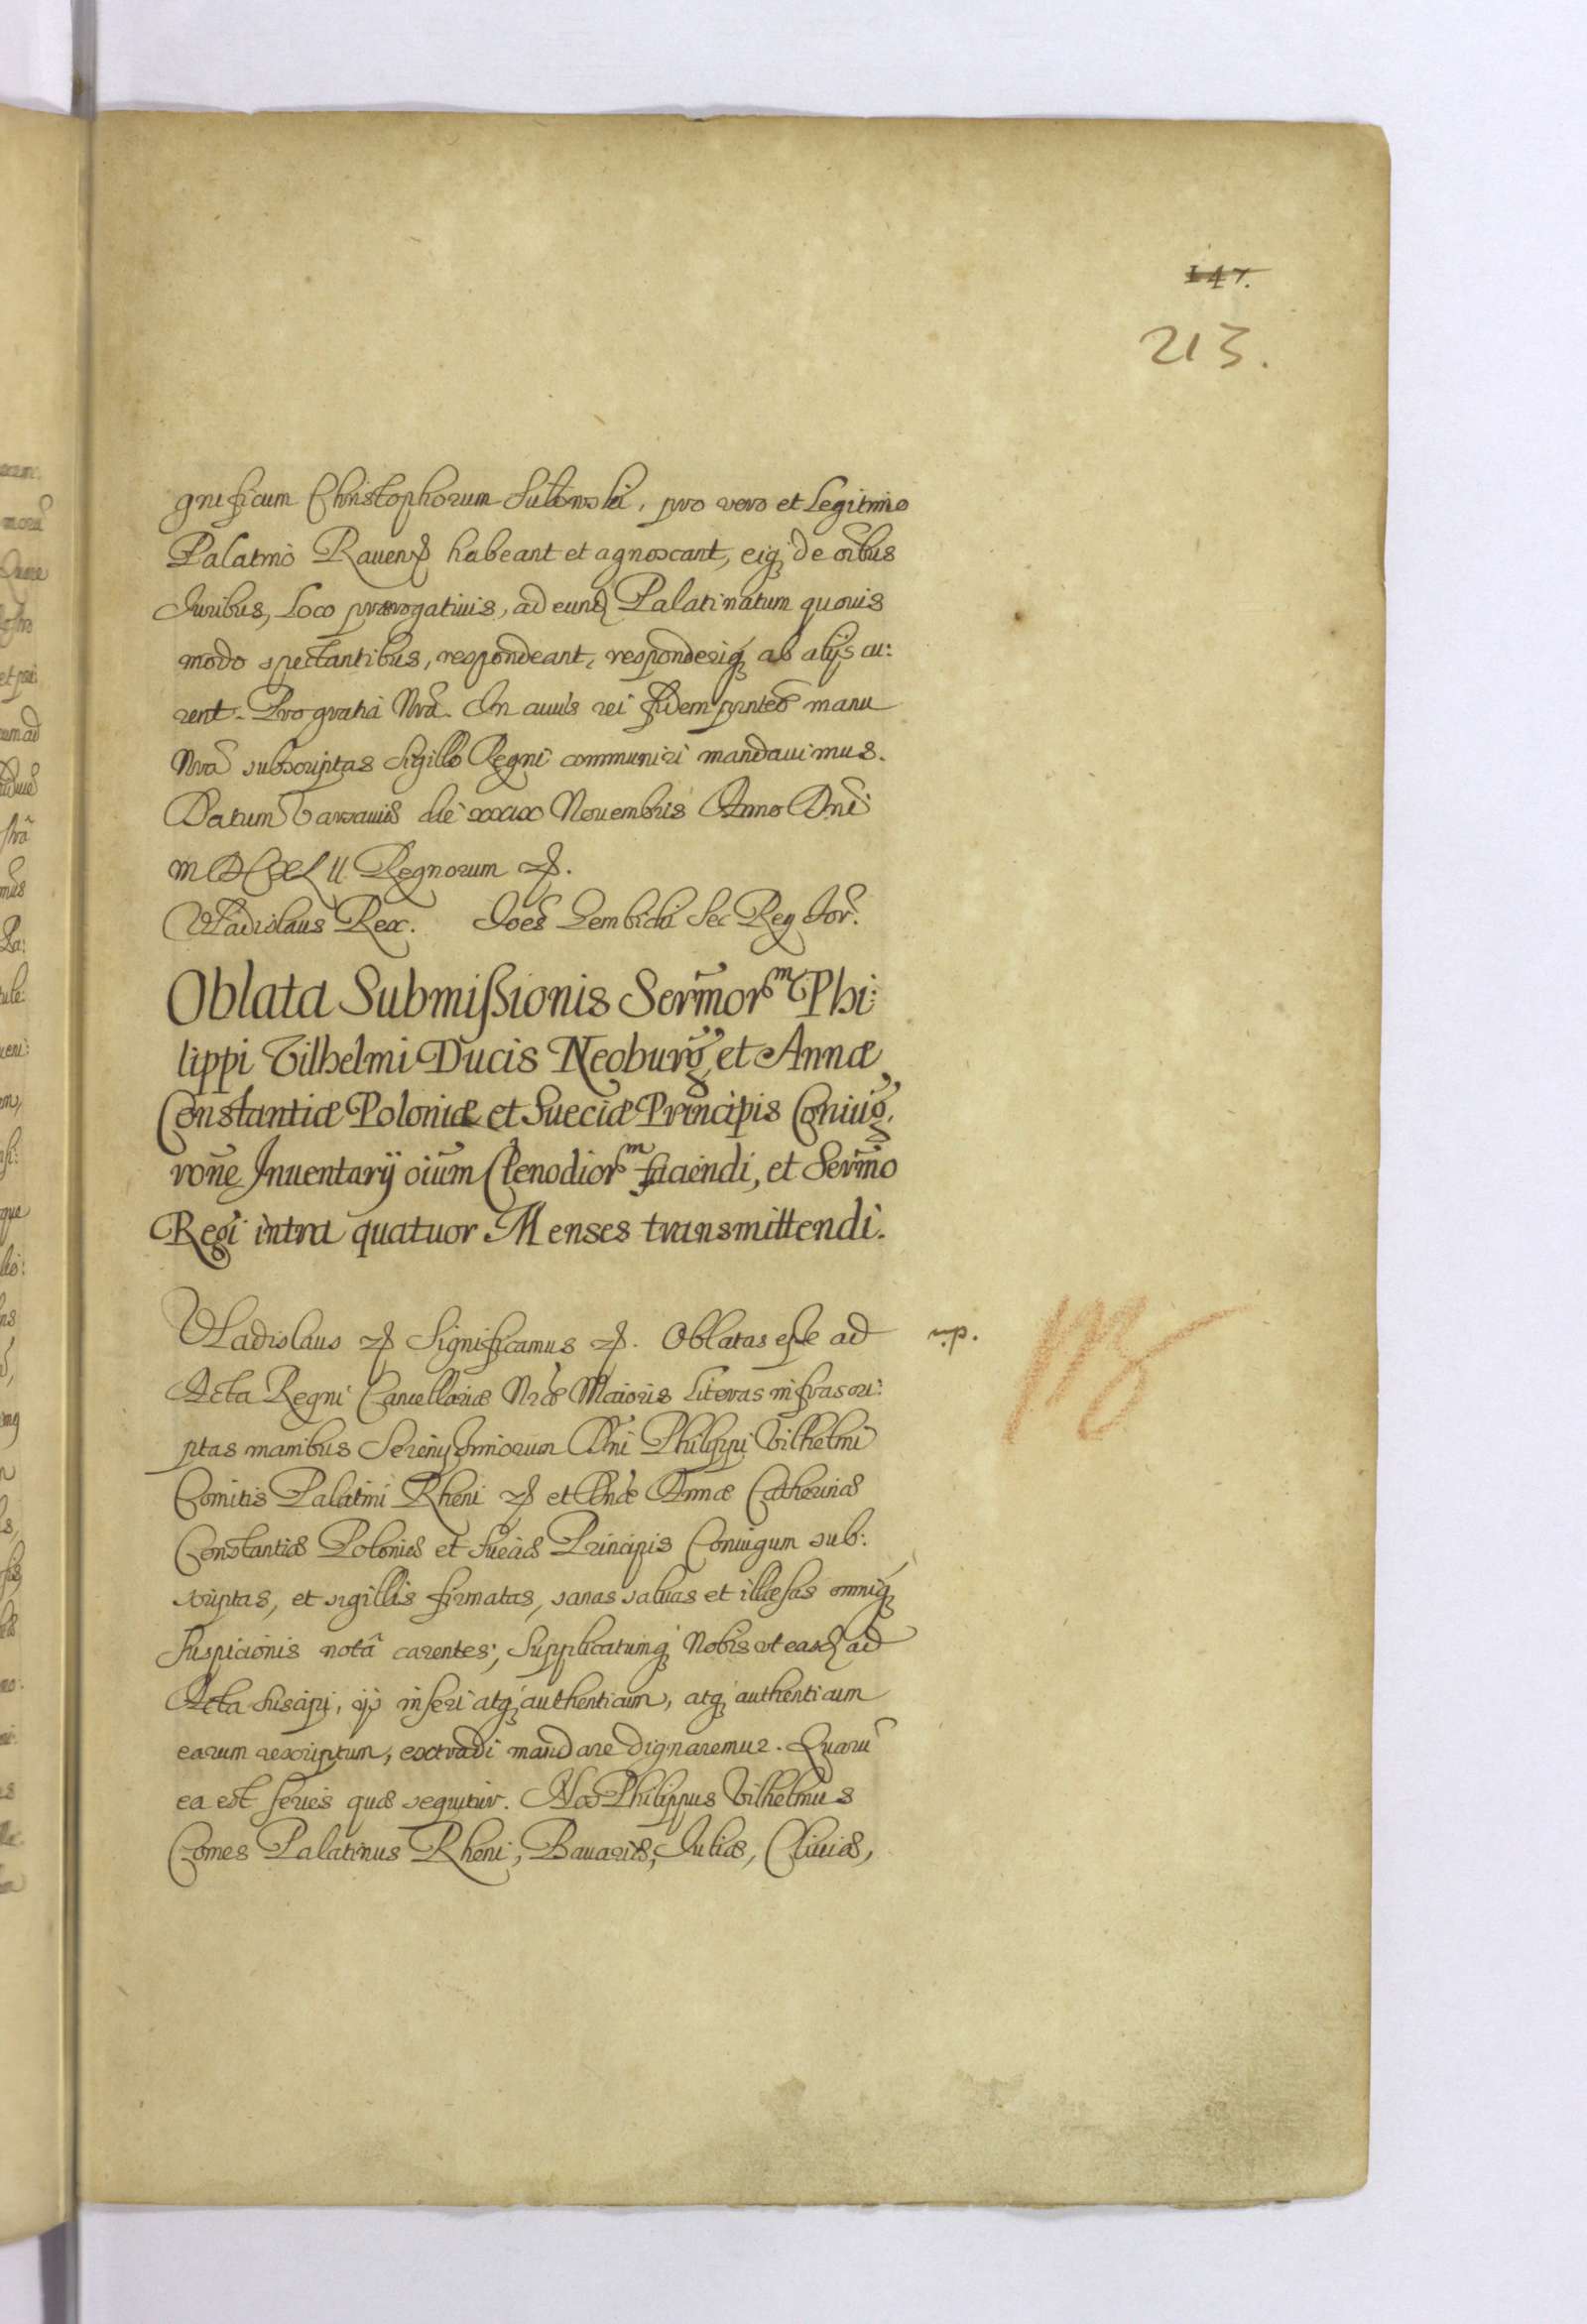 147.
213.
gnificum Christophorum Sulinski, pro vero et Legitimo
Palatino Rauens̃ habeant et agnoscant, eiq́ de oĩbus
Iuribus, Loco prærogatiuis, ad eund̃ Palatinatum quouis
modo spectantibus, respondeant, responderiq́ ab alijs cu:
rent. Pro gratia Nrã. In cuius rei fidem pr̃ntes manu
Nrã subscriptas Sigillo Regni communiri mandauimus.
Datum Varsauiæ die xxix Nouembris Anno Dñi
MDCXLII Regnorum etc.
Vladislaus Rex. Joẽs Gembicki Sec Reg
Oblata Submißionis Serm̃orᵐ Phi:
lippi Vilhelmi Ducis Neoburg̃ et Annæ
Constantiæ Poloniæ et Sueciæ Principis Coniug̃.
rõne Inuentarij oĩum Clenodiorᵐ faciendi, et Serm̃o
Regi intra quatuor Menses transmittendi.
Vladislaus etc Significamus etc. Oblatas esse ad
np.
Acta Regni Cancellariæ Nr̃æ Maioris Literas infrascri:
ptas manibus Serenissimorum Dñi Philippi Vilhelmi
Comitis Palatini Rheni etc et Dnæ Annæ Catherinæ
Constantiæ Poloniæ et Sueciæ Principis Coniugum sub:
scriptas, et sigillis firmatas, sanas saluas et illæsas omniq́
suspicionis notâ carentes; Supplicatumq́ Nobis vt easd̃ ad
Acta suscipi, ijs inseri atq́ authenticum, atq́ authenticum
earum rescriptum, extradi mandare dignaremur. Quarũ
ea est series quæ sequitur. Nos Philippus Vilhelmus
Comes Palatinus Rheni, Bauariæ, Juliæ, Cliuiæ,